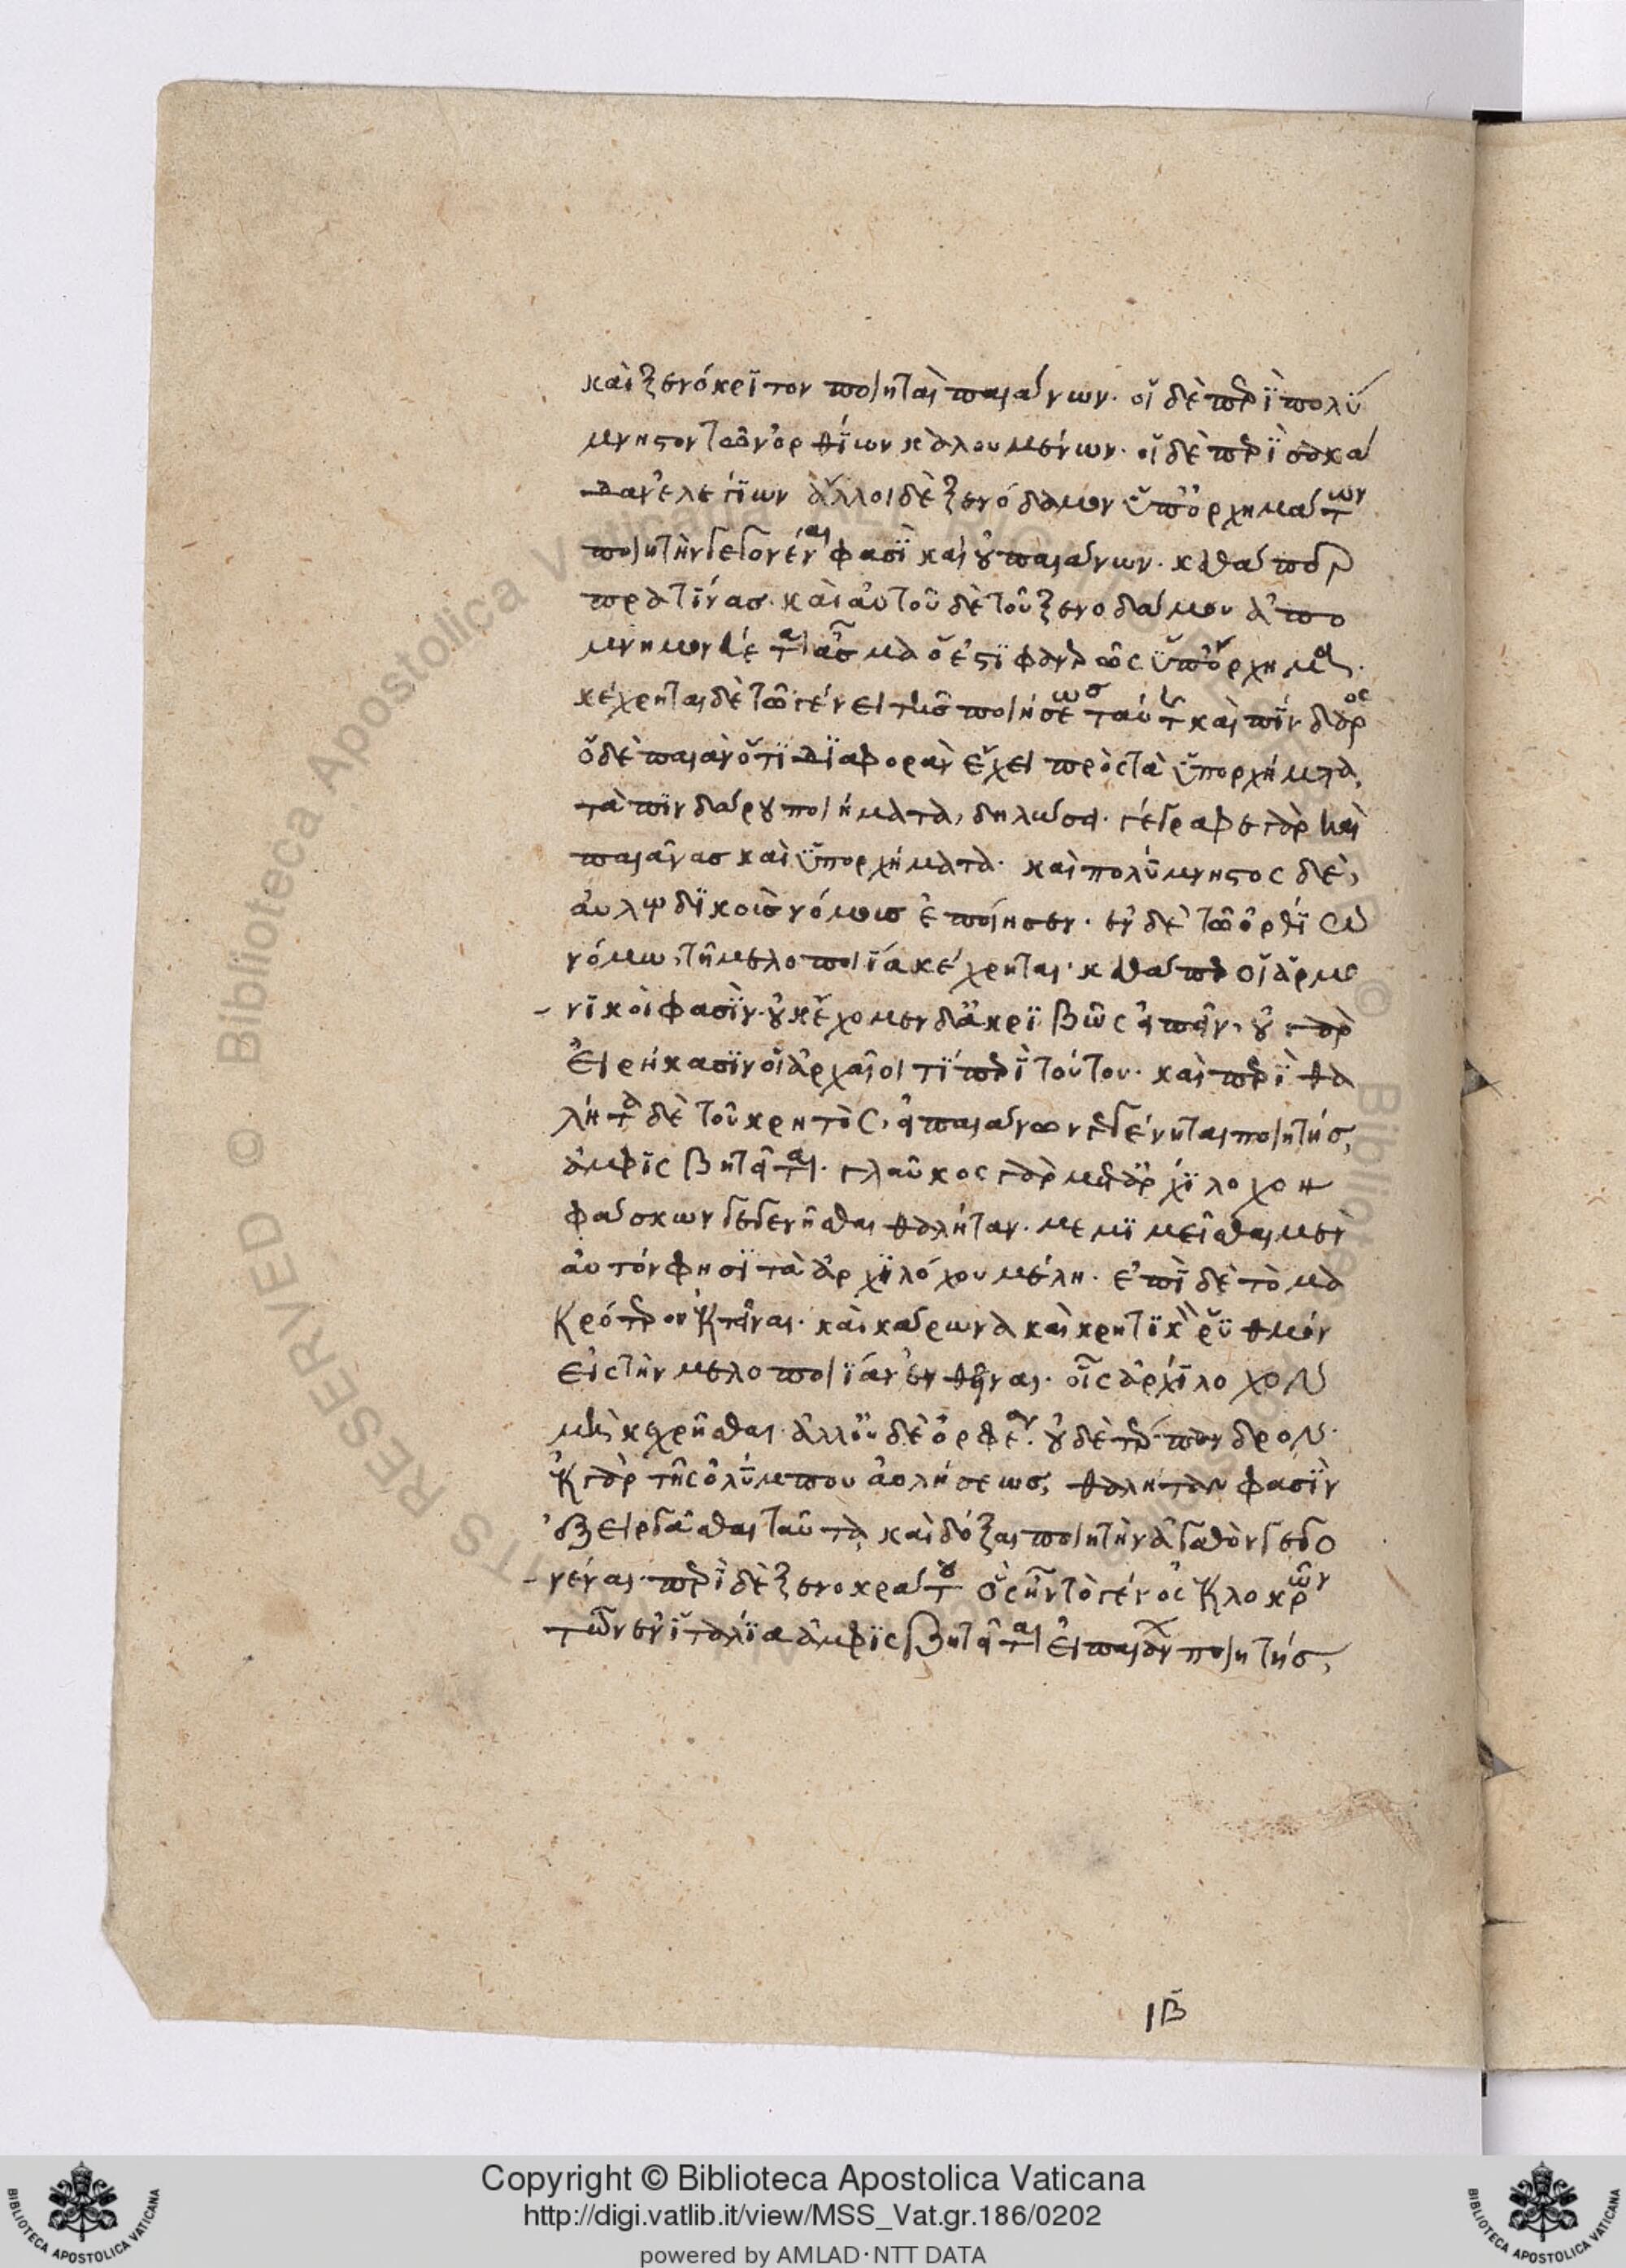 καὶ ξενόκριτον ποιηταὶ παιάνων· οἱ δὲ περὶ πολύ
μνηστον τῶν ὀρθίων καλουμένων· οἱ δὲ περὶ σακά
δαν ἐλεγείων ἄλλοι δὲ ξενόδαμον ὑπορχημάτων
ποιητὴν γεγονέναι φασὶ καὶ οὐ παιάνων· καθάπερ
πρατίνας· καὶ αὐτοῦ δὲ τοῦ ξενοδάμου ἀπο
μνημονεύεται ᾆσμα ὅ ἐστι φανερῶς ὑπόρχημα·
κέχρηται δὲ τῶ γένει τῆς ποιήσεως ταύτης καὶ πίνδαρος
ὁ δὲ παιὰν ὅτι διαφορὰν ἔχει πρὸς τὰ ὑπορχήματα,
τὰ πινδάρου ποιήματα, δηλώσει· γέγραφε γὰρ καὶ
παιᾶνας καὶ ὑπορχήματα· καὶ πολύμνηστος δὲ,
αὐλῳδικοὺς νόμους ἐποίησεν· ἐν δὲ τῶ ὀρθίω
νόμω, τῆ μελοποιΐα κέχρηται· καθάπερ οἱ ἁρμο
νικοί φασιν· οὐκ ἔχομεν δ' ἀκριβῶς εἰπεῖν· οὐ γὰρ
εἰρήκασιν οἱ ἀρχαῖοι τί περὶ τούτου· καὶ περὶ θα
λήτα δὲ τοῦ κρητὸς, εἰ παιάνων γεγένηται ποιητής,
ἀμφισβητεῖται· γλαῦκος γὰρ μετ' ἀρχίλοχον
φάσκων γεγενῆσθαι θαλήταν· μεμιμεῖσθαι μὲν
αὐτόν φησι τὰ ἀρχιλόχου μέλη· ἐπὶ δὲ τὸ μα
κρότερον ἐκτεῖναι· καὶ μάρωνα καὶ κρητικὸν ῥυθμὸν
εἰς τὴν μελοποιΐαν ἐνθεῖναι· οἷς ἀρχίλοχον
μὴ κεχρῆσθαι· ἀλλ' οὐδὲ ὀρφέα· οὐδὲ τέρπανδρον·
ἐκ γὰρ τῆς ὀλύμπου αὐλήσεως, θαλήταν φασὶν
ἐξειργάσθαι ταῦτα, καὶ δόξαι ποιητὴν ἀγαθὸν γεγο
νέναι· περὶ δὲ ξενοκράτου ὃς ἦν τὸ γένος ἐκ λοκρῶν
τῶν ἐν ἰταλία ἀμφισβητεῖται εἰ παιάνων ποιητής,
ιβ
Copyright © Biblioteca Apostolica Vaticana
http://digi.vatlib.it/view/MSS_Vat.gr.186/0202
powered by AMLAD·NTT DATA